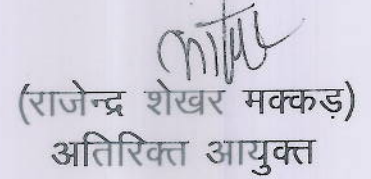 (राजेन्द्र शेखर मक्कड़)
अतिरिक्त आयुक्त